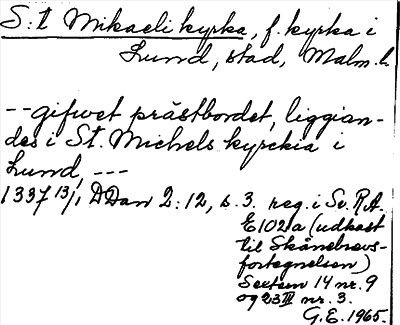 S:t Mikaeli kyrka, f. kyrka i
Lund, stad, Malm. l.
--gifwet prästbordet, liggian-
des i St. Michels kyrckia i
Lund, ---
1337 13/1 DDan 2:12, s. 3. reg. i Sv. R.A.
E102a (udkast
til Skånebrevs-
fortegnelsen)
Sextern 14 nr. 9
og 23 III nr. 3.
G.E. 1965.